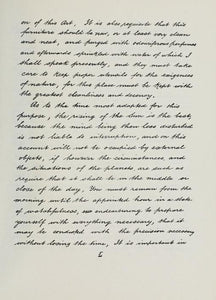 on of this Art, It is also requisite that this
furniture should be new, or at least very clean
and neat, and purged with odoriferous perfumes
and afterwards sprinkled with water of which I
shall speak presently, and they must take
care to keep proper utensils for the exigences
of nature, for this place must be kept with
the greatest cleanliness and decency.
As to the time most adapted for this
purpose, the rising of the Sun is the best,
because the mind being then less distracted
is not liable to interruption, and on this
account will not be occupied by external
objects, if however the circumstances and
the situations of the planets are such as
require that it shall be in the middle or
close of the day, You must remain from the
morning until the appointed hour in a state
of watchfulness, so endeavouring to prepare
yourself with everything necessary, that it
may be conducted with the precision necessary
without losing the time, It is important in